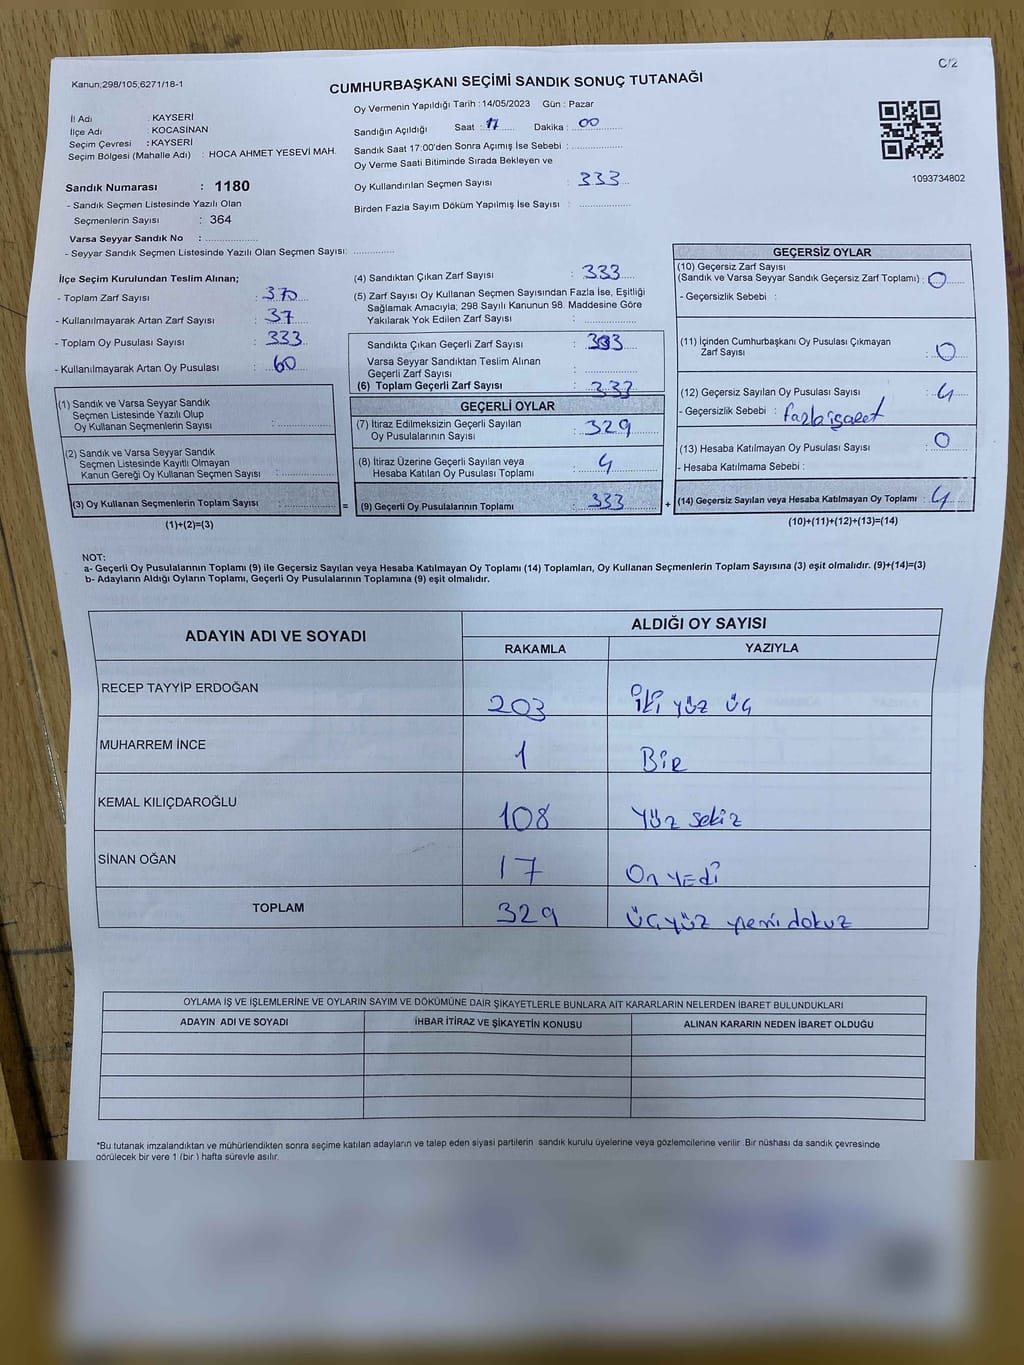 Kanun;298/105,6271/18-1
C/2
CUMHURBAŞKANI SEÇİMİ SANDIK SONUÇ TUTANAĞI
İl Adı : KAYSERİ
İlçe Adı : KOCASİNAN
Seçim Çevresi : KAYSERİ
Seçim Bölgesi (Mahalle Adı) : HOCA AHMET YESEVİ MAH.
Sandık Numarası : 1180
- Sandık Seçmen Listesinde Yazılı Olan
Seçmenlerin Sayısı : 364
Varsa Seyyar Sandık No :
- Seyyar Sandık Seçmen Listesinde Yazılı Olan Seçmen Sayısı:
Oy Vermenin Yapıldığı Tarih : 14/05/2023 Gün : Pazar
Sandığın Açıldığı Saat : 17 Dakika : 00
Sandık Saat 17:00'den Sonra Açımış İse Sebebi :
Oy Verme Saati Bitiminde Sırada Bekleyen ve
Oy Kullandırılan Seçmen Sayısı : 333
Birden Fazla Sayım Döküm Yapılmış İse Sayısı :
1093734802
İlçe Seçim Kurulundan Teslim Alınan;
- Toplam Zarf Sayısı : 370
- Kullanılmayarak Artan Zarf Sayısı : 37
- Toplam Oy Pusulası Sayısı : 333
- Kullanılmayarak Artan Oy Pusulası : 60
(1) Sandık ve Varsa Seyyar Sandık
Seçmen Listesinde Yazılı Olup
Oy Kullanan Seçmenlerin Sayısı :
(2) Sandık ve Varsa Seyyar Sandık
Seçmen Listesinde Kayıtlı Olmayan
Kanun Gereği Oy Kullanan Seçmen Sayısı :
(3) Oy Kullanan Seçmenlerin Toplam Sayısı : =
(1)+(2)=(3)
(4) Sandıktan Çıkan Zarf Sayısı : 333
(5) Zarf Sayısı Oy Kullanan Seçmen Sayısından Fazla İse, Eşitliği
Sağlamak Amacıyla; 298 Sayılı Kanunun 98. Maddesine Göre
Yakılarak Yok Edilen Zarf Sayısı :
Sandıkta Çıkan Geçerli Zarf Sayısı : 333
Varsa Seyyar Sandıktan Teslim Alınan
Geçerli Zarf Sayısı :
(6) Toplam Geçerli Zarf Sayısı : 333
GEÇERLİ OYLAR
(7) İtiraz Edilmeksizin Geçerli Sayılan
Oy Pusulalarının Sayısı : 329
(8) İtiraz Üzerine Geçerli Sayılan veya
Hesaba Katılan Oy Pusulası Toplamı : 4
(9) Geçerli Oy Pusulalarının Toplamı : 333 +
GEÇERSİZ OYLAR
(10) Geçersiz Zarf Sayısı
(Sandık ve Varsa Seyyar Sandık Geçersiz Zarf Toplamı) : 0
- Geçersizlik Sebebi :
(11) İçinden Cumhurbaşkanı Oy Pusulası Çıkmayan
Zarf Sayısı : 0
(12) Geçersiz Sayılan Oy Pusulası Sayısı : 4
- Geçersizlik Sebebi : fazla işaret
(13) Hesaba Katılmayan Oy Pusulası Sayısı : 0
- Hesaba Katılmama Sebebi :
(14) Geçersiz Sayılan veya Hesaba Katılmayan Oy Toplamı : 4
(10)+(11)+(12)+(13)=(14)
NOT:
a- Geçerli Oy Pusulalarının Toplamı (9) ile Geçersiz Sayılan veya Hesaba Katılmayan Oy Toplamı (14) Toplamları, Oy Kullanan Seçmenlerin Toplam Sayısına (3) eşit olmalıdır. (9)+(14)=(3)
b- Adayların Aldığı Oyların Toplamı, Geçerli Oy Pusulalarının Toplamına (9) eşit olmalıdır.
ADAYIN ADI VE SOYADI
ALDIĞI OY SAYISI
RAKAMLA YAZIYLA
RECEP TAYYİP ERDOĞAN 203 iki yüz üç
MUHARREM İNCE 1 Bir
KEMAL KILIÇDAROĞLU 108 Yüz sekiz
SİNAN OĞAN 17 On yedi
TOPLAM 329 üçyüz yirmi dokuz
OYLAMA İŞ VE İŞLEMLERİNE VE OYLARIN SAYIM VE DÖKÜMÜNE DAİR ŞİKAYETLERLE BUNLARA AİT KARARLARIN NELERDEN İBARET BULUNDUKLARI
ADAYIN ADI VE SOYADI İHBAR İTİRAZ VE ŞİKAYETİN KONUSU ALINAN KARARIN NEDEN İBARET OLDUĞU
*Bu tutanak imzalandıktan ve mühürlendikten sonra seçime katılan adayların ve talep eden siyasi partilerin sandık kurulu üyelerine veya gözlemcilerine verilir .Bir nüshası da sandık çevresinde
görülecek bir yere 1 (bir ) hafta süreyle asılır.